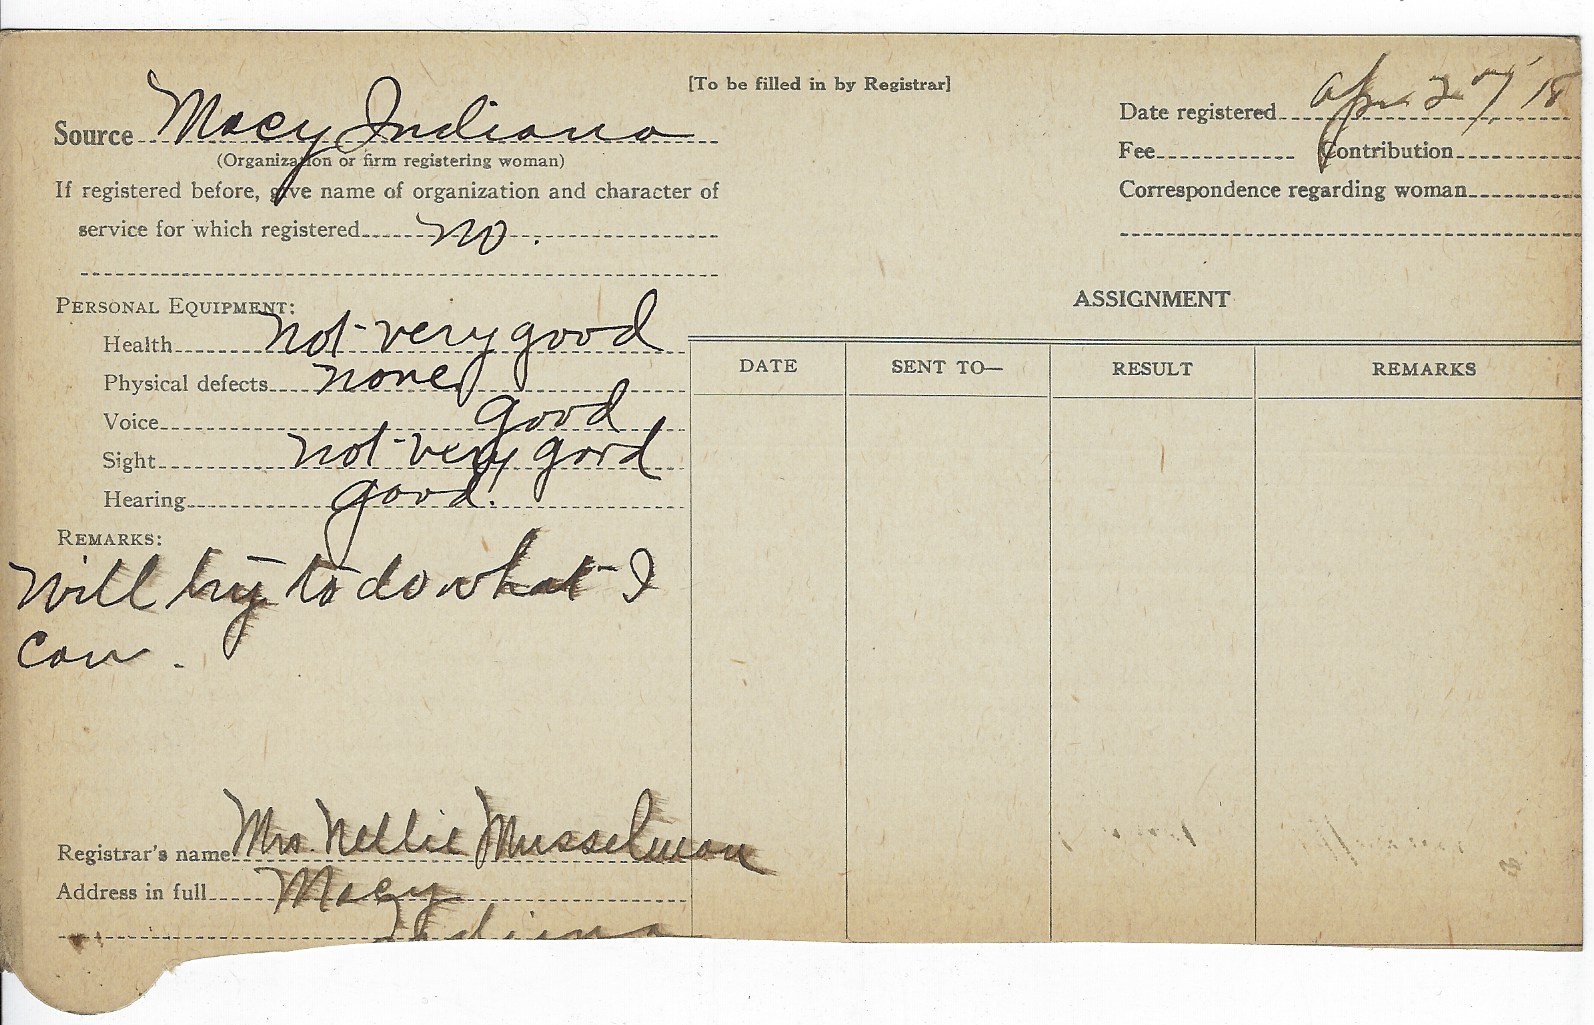 [To be filled in by Registrar]
Source Macy Indiana
(Organization or firm registering woman)
If registered before, give name of organization and character of
service for which registered no.
Date registered Apr 27, '18
Fee Contribution
Correspondence regarding woman
PERSONAL EQUIPMENT:
Health not very good
Physical defects none
Voice good
Sight not very good
Hearing good.
REMARKS:
Will try to do what I
can.
Registrar's name Mrs. Nellie Musselman
Address in full Macy
Indiana
ASSIGNMENT
DATE SENT TO— RESULT REMARKS